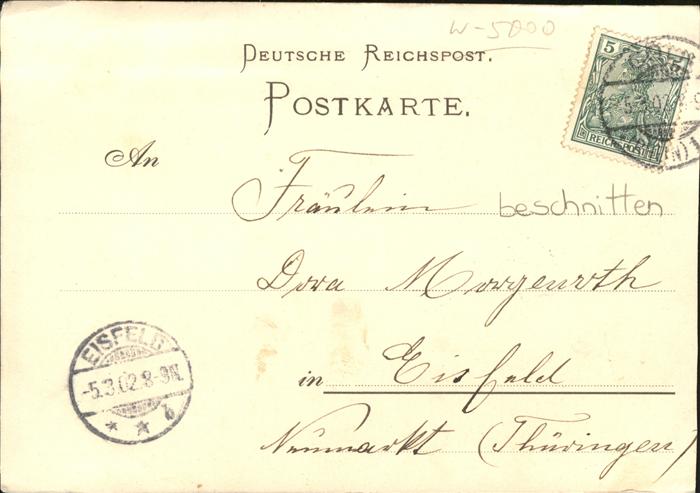 W-5000
DEUTSCHE REICHSPOST.
POSTKARTE.
5
REICHSPOST
An
Fräulein
beschnitten
Dora Morgenroth
in Eisfeld
Neumarkt (Thüringen)
EISFELD
-5.3.02.8-9N.
* * b